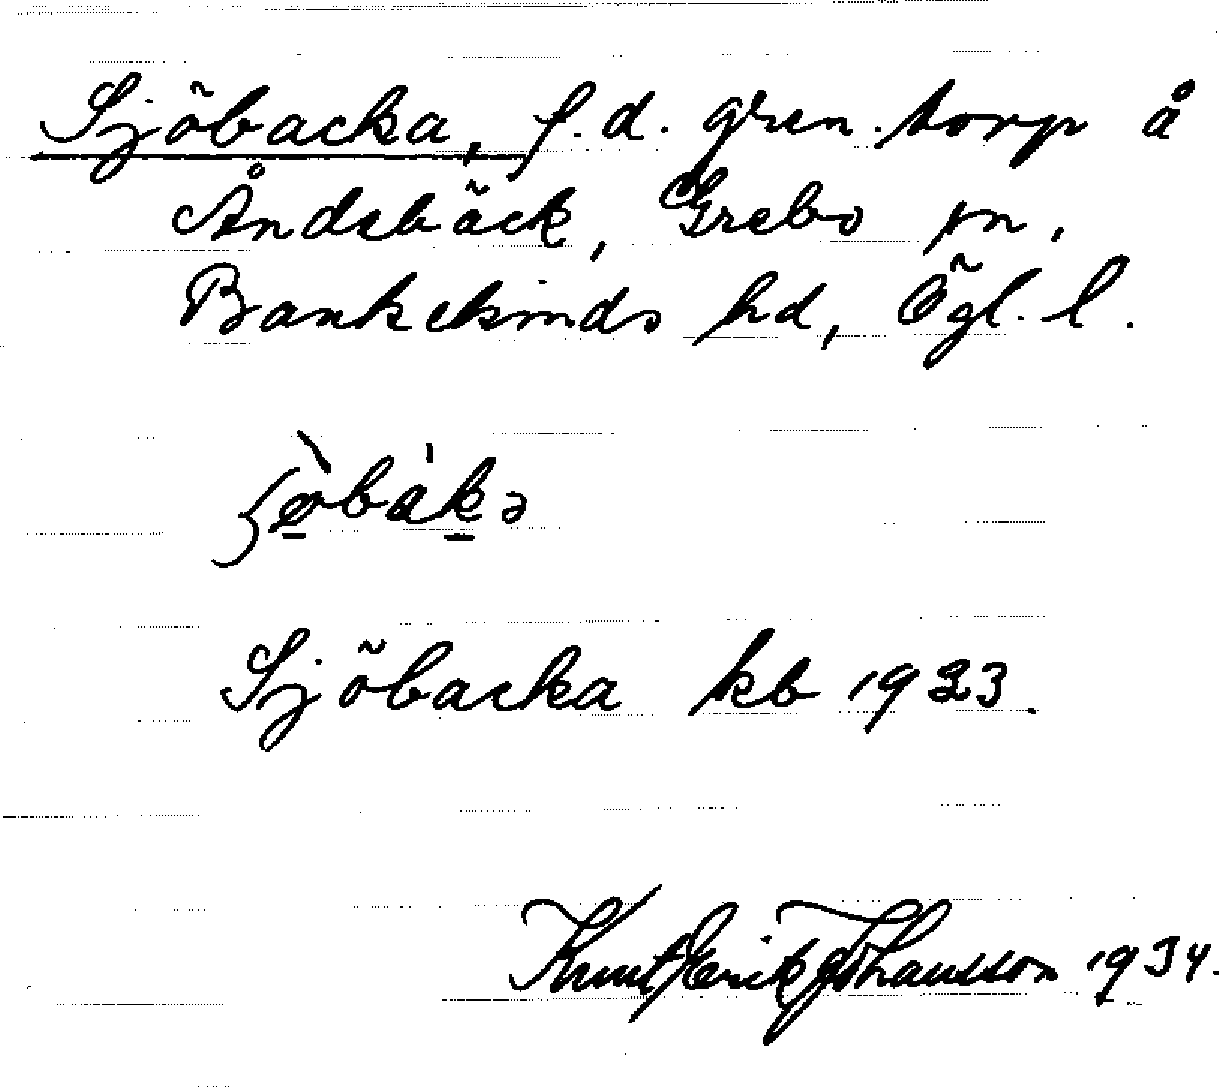 Sjöbacka, f.d. gren.torp å
Åndebäck, Grebo sn,
Bankekinds hd, Ögl. l.
Sjöbacka kb 1933.
Knut Erik Johansson 1934.